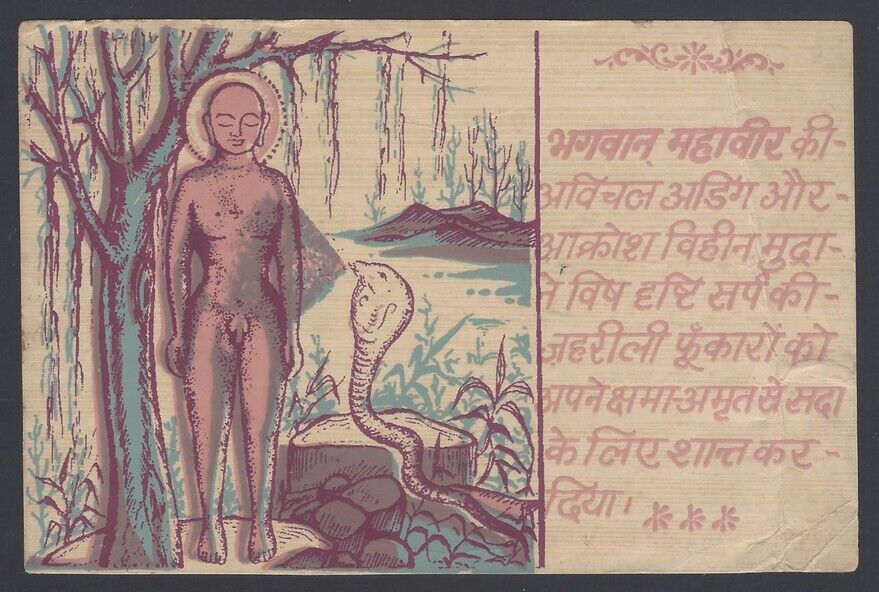 भगवान् महावीर की-
अविचल अडिग और-
आक्रोश विहीन मुद्रा-
ने विष दृष्टि सर्प की-
ज़हरीली फूँकारों को
अपने क्षमा-अमृत से सदा
के लिए शान्त कर-
दिया।